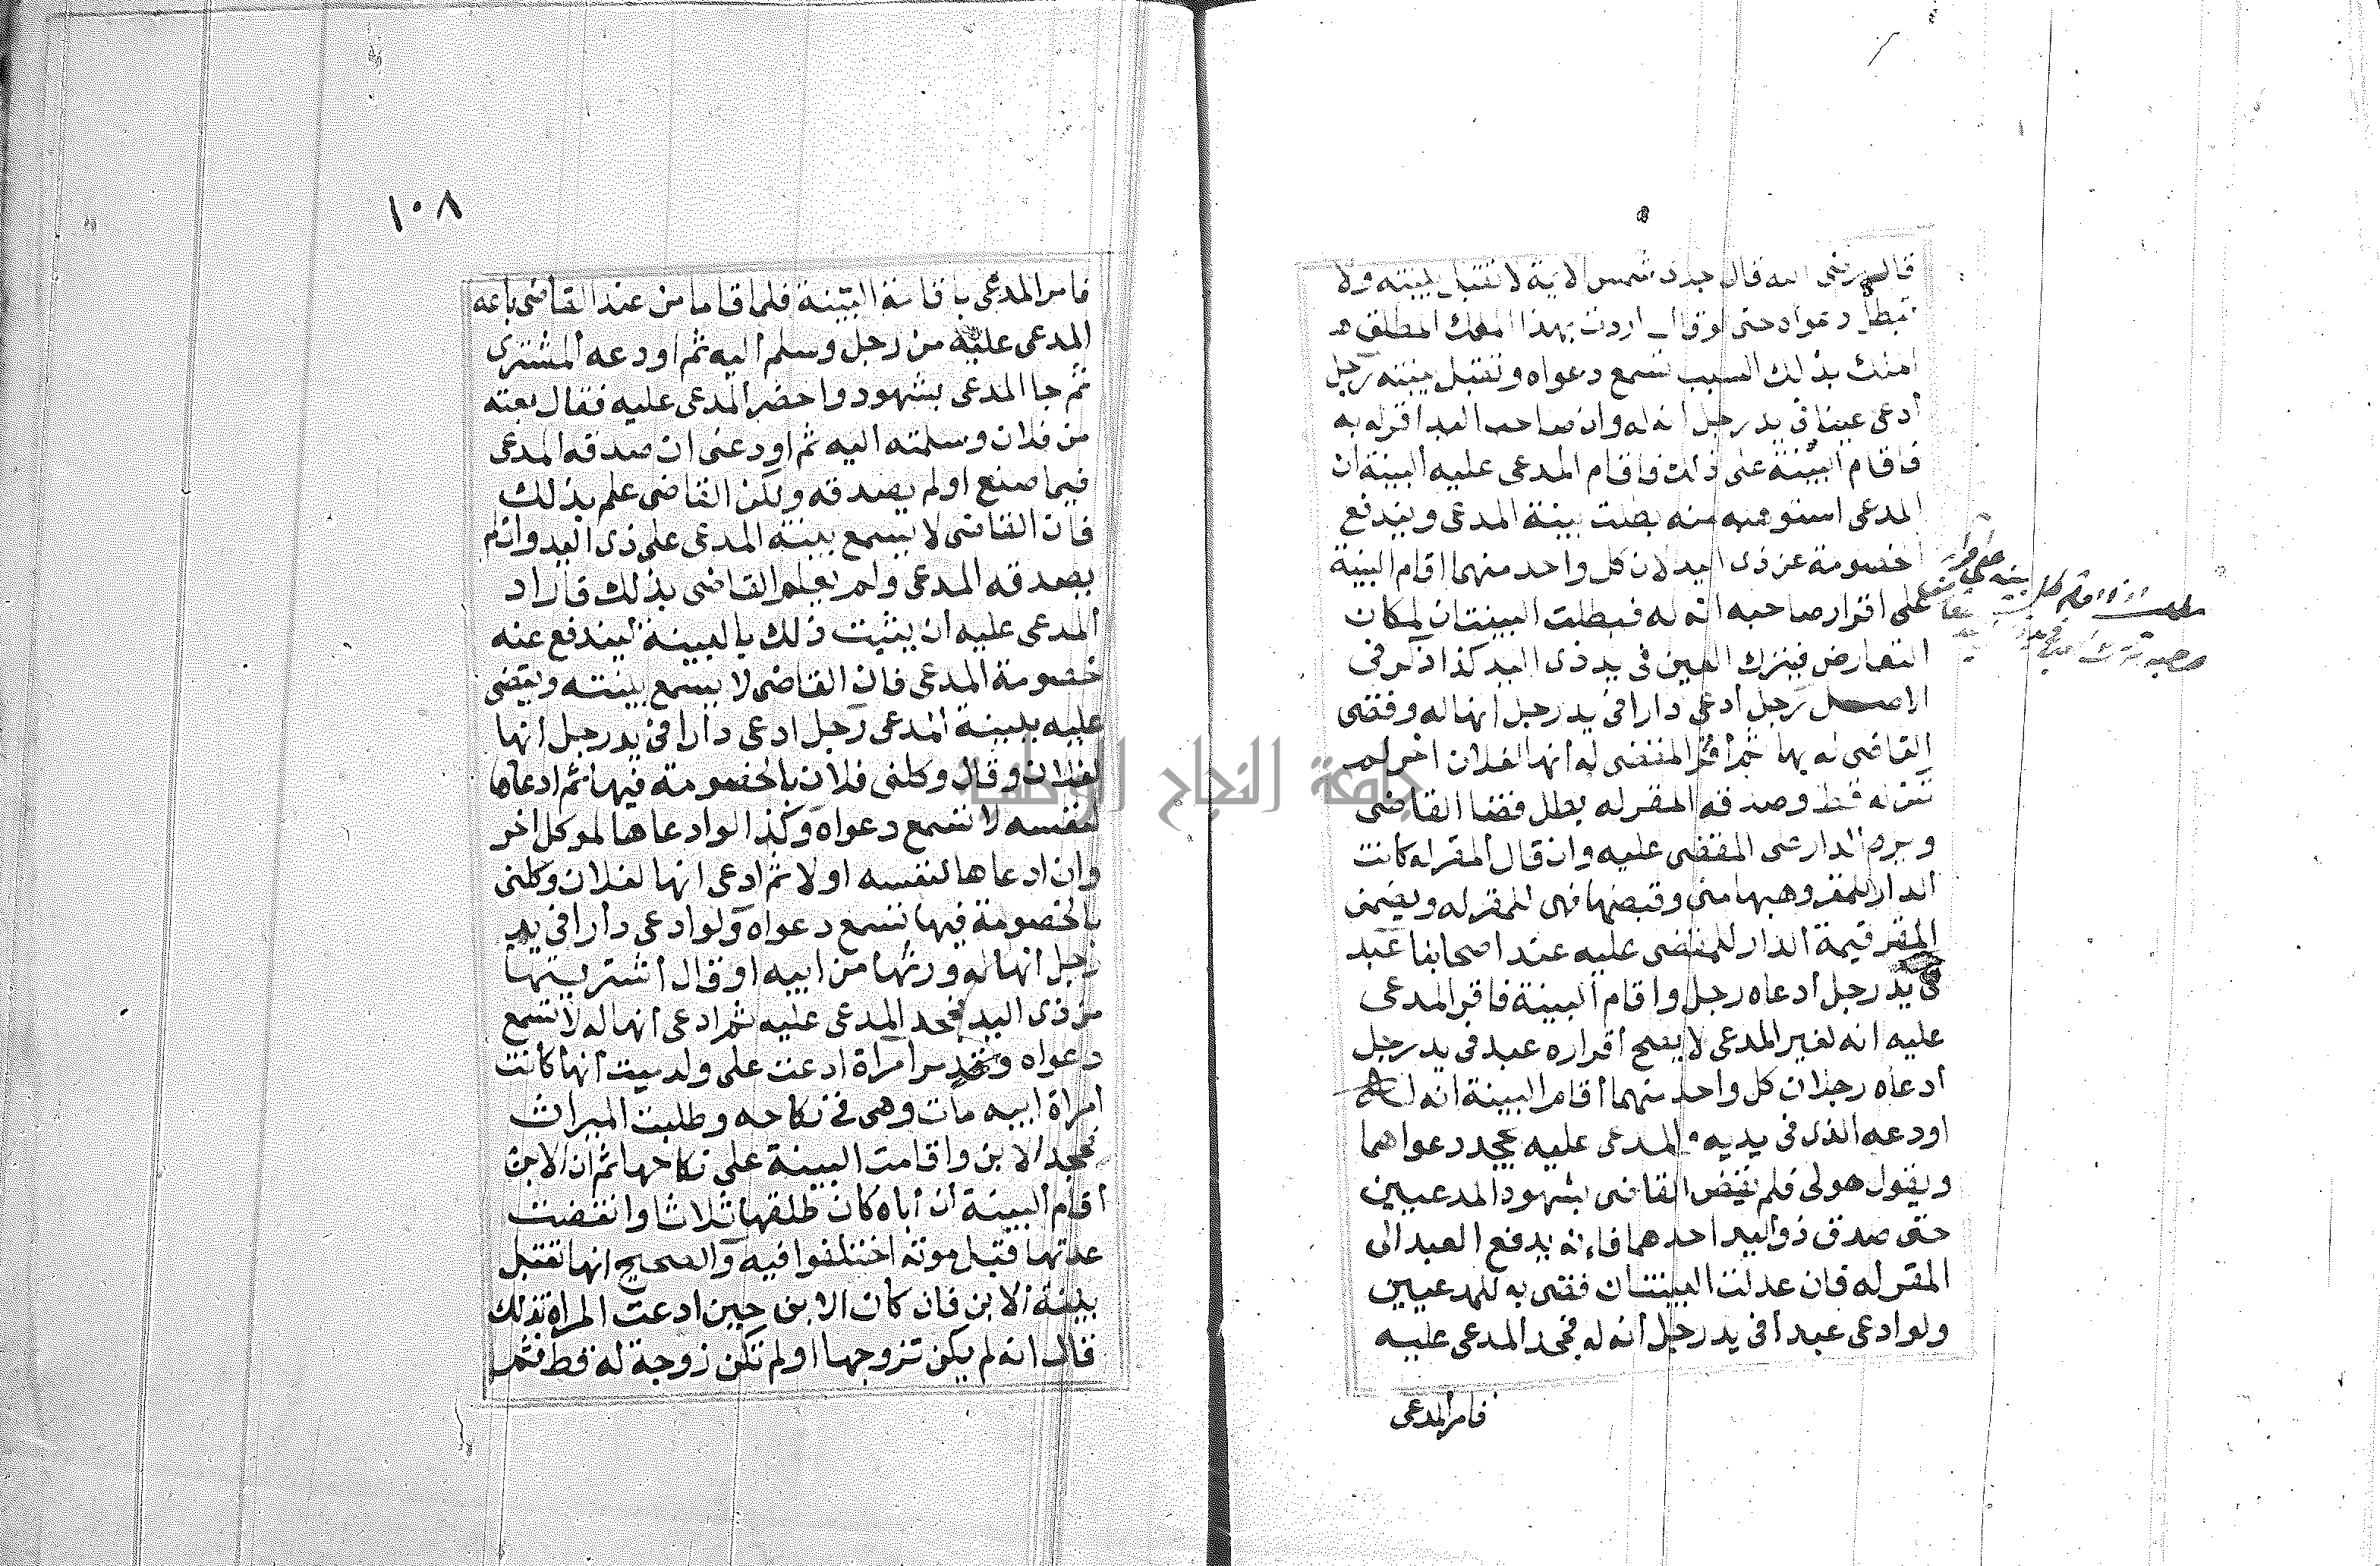 قال رضى الله قال جدى شمس الاية لا تقبل بينته ولا
تبطل دعواه حتى لو قال اردت بهذا الملك المطلق
بذلك السبب تسمع دعواه وتقبل بينته رجل
أدعى عينا فى يد رجل انه له وان صاحب اليد اقر له به
فاقام البينة على ذلك فاقام المدعى عليه البينة ان
المدعى استوهبه منه بطلت بينة المدعى ويندفع
خصومة عن ذى اليد لان كل واحد منهما اقام البينة
على اقرار صاحبه انه له فبطلت البينتان لمكان
التعارض فيترك العين فى يد ذى اليد كذا ذكر فى
الاصل رجل أدعى دارا فى يد رجل انها له وقضى
القاضى له بها ثم أقر المقضى له أنها لفلان اخر لم
تكن له قط وصدقه المقر له بطل قضا القاضى
ويرد الدار على المقضى عليه وان قال المقر له كانت
الدار للمقر وهبها منى وقبضها فهى للمقر له ويضمن
المقر قيمة الدار للمقضى عليه عند اصحابنا عبد
فى يد رجل أدعاه رجل واقام البينة فاقر المدعى
عليه انه لغير المدعى لا يصح أقراره عبد فى يد رجل
أدعاه رجلان كل واحد منهما أقام البينة انه له
اودعه الذى فى يديه والمدعى عليه يجحد دعواهما
ويقول هو لى فلم يقض القاضى بشهود المدعيين
حتى صدق ذو اليد احدهما فانه يدفع العبد الى
المقر له فان عدلت البينتان فقضى به للمدعيين
ولو ادعى عبدا فى يد رجل أنه له فجحد المدعى عليه
فامر المدعى
١٠٨
فامر المدعى باقامة البينة فلما قاما من عند القاضى باعه
المدعى عليه من رجل وسلم اليه ثم اودعه المشترى
ثم جا المدعى بشهود واحضر المدعى عليه فقال بعته
من فلان وسلمته اليه ثم اودعنى ان صدقه المدعى
فيما صنع اولم يصدقه ولكن القاضى علم بذلك
فان القاضى لا يسمع بينة المدعى على ذى اليد وان لم
يصدقه المدعى ولم يعلم القاضى بذلك فاراد
المدعى عليه أن يثبت ذلك بالبينة ليندفع عنه
خصومة المدعى فان القاضى لا يسمع بينته ويقضى
عليه ببينة المدعى رجل ادعى دارا فى يد رجل أنها
لفلان وقال وكلنى فلان بالخصومة فيها ثم ادعاها
لنفسه لا تسمع دعواه وكذا لو ادعاها لموكل اخر
وان ادعاها لنفسه اولا ثم ادعى انها لفلان وكلنى
بالخصومة فيها تسمع دعواه ولو ادعى دارا فى يد
رجل أنها له ورثها من ابيه او قال أشتريتها
من ذى اليد فجحد المدعى عليه ثم ادعى أنها له لا تسمع
دعواه امرأة ادعت على ولد ميت أنها كانت
امراة ابيه مات وهى فى نكاحه وطلبت الميراث
فجحد الابن واقامت البينة على نكاحها ثم ان الابن
أقام البينة أن أباه كان طلقها ثلاثا وانقضت
عدتها قبل موته اختلفوا فيه والصحيح انها تقبل
بينة الابن فان كان الابن حين ادعت المراة ذلك
قال انه لم يكن تزوجها اولم تكن زوجة له قط فثم
جامعة النجاح الوطنية